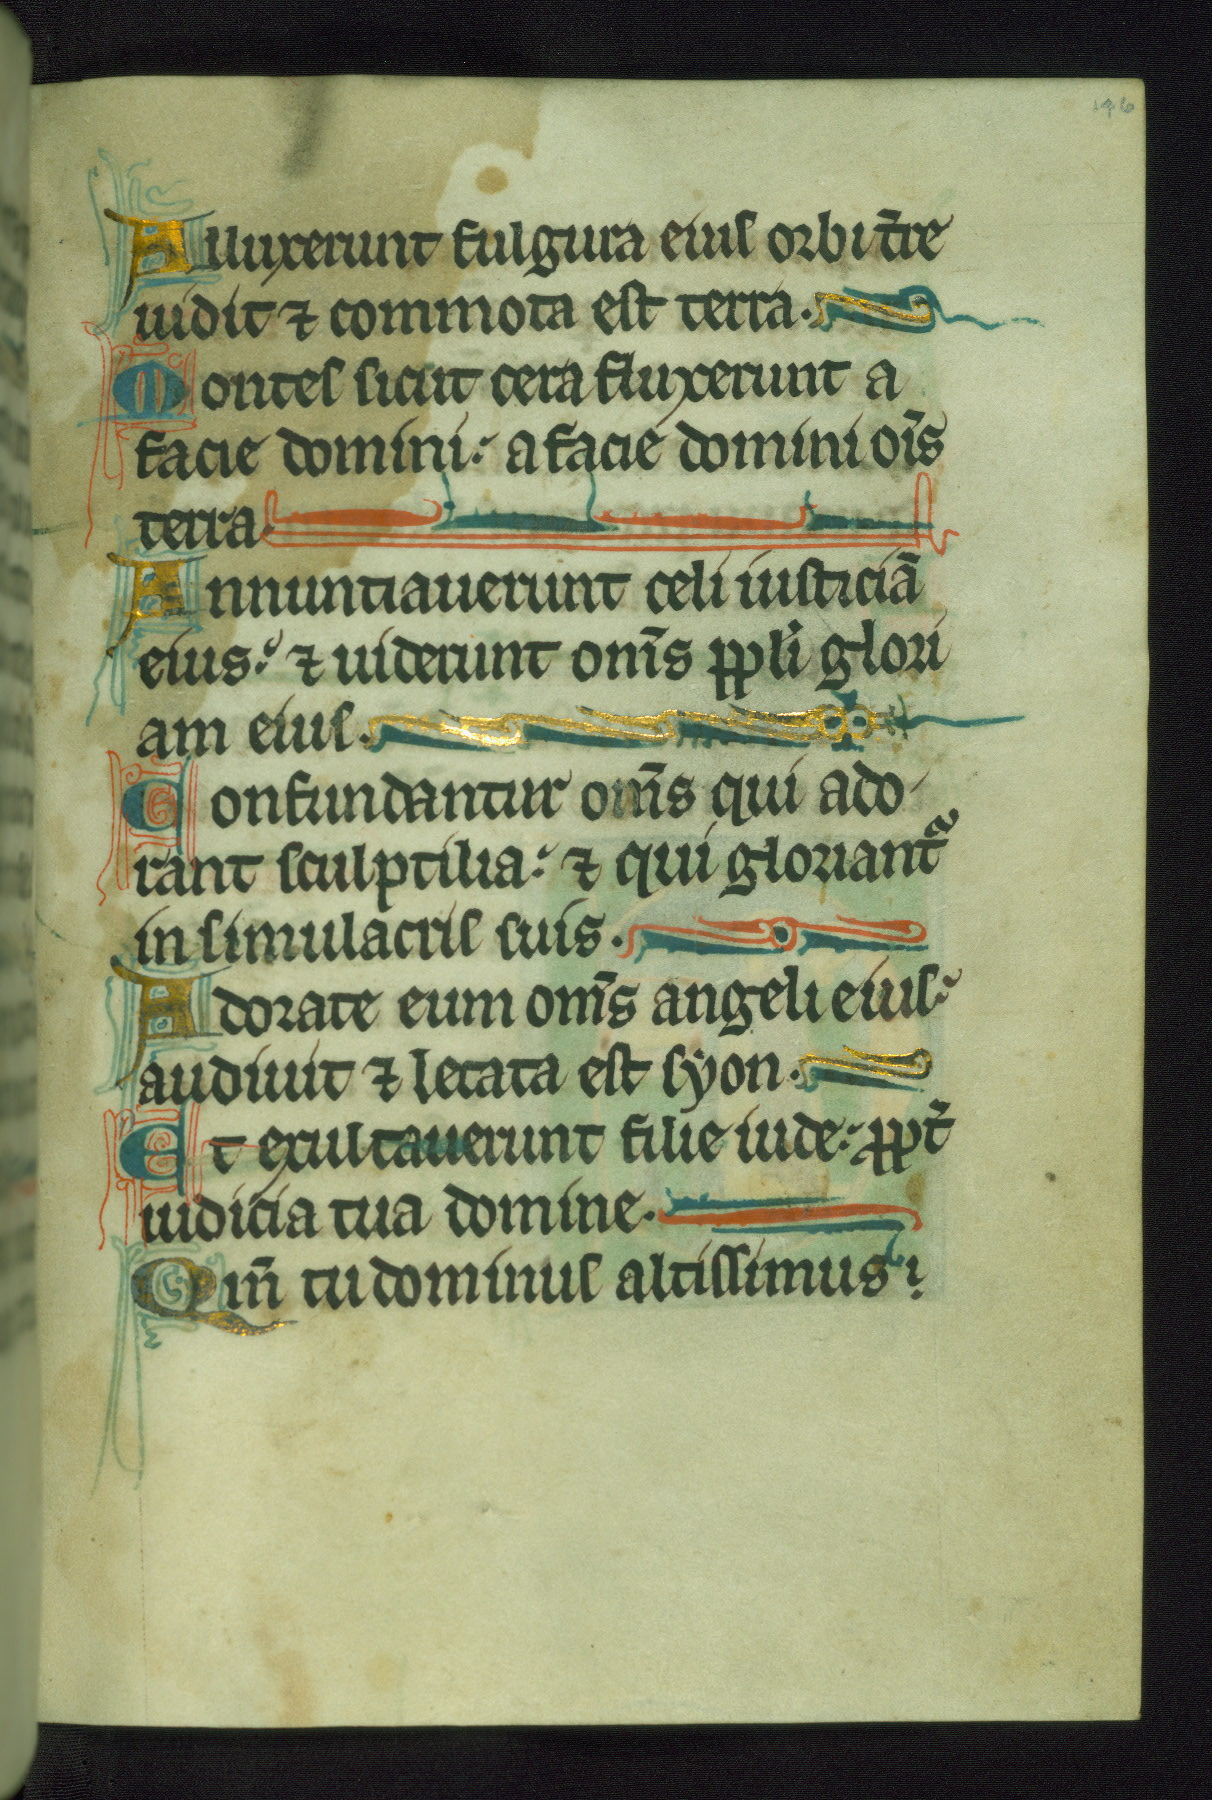 Alluxerunt fulgura eius orbi t̄re
uidit ⁊ commota est terra.
Montes sicut cera fluxerunt a
facie domini: a facie domini oīs
terra.
Annuntiauerunt celi iusticiā
eius: ⁊ uiderunt om̄s ppl̄i glori
am eius.
Confundantur om̄s qui ado
rant sculptilia: ⁊ qui gloriantᷓ
in simulacris suis.
Adorate eum om̄s angeli eius:
audiuit ⁊ letata est syon.
Et exultauerunt filie iude: ppt̄
iudicia tua domine.
Qm̄ tu dominus altissimus